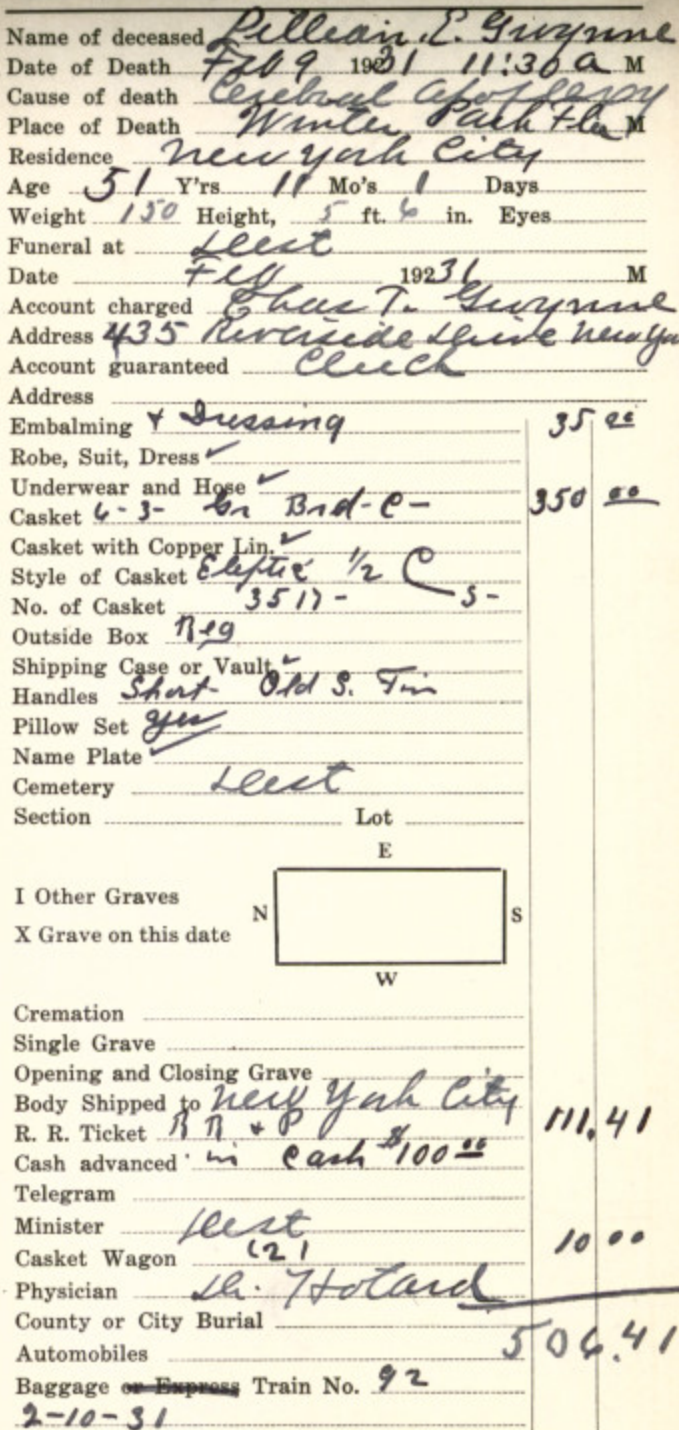 Name of deceased Lillian. E. Gwynne
Date of Death Feb 9 1931 11:30 a M
Cause of death Cerebral Apoplexy
Place of Death Winter Park Fla M
Residence New York City
Age 51 Y'rs 11 Mo's 1 Days
Weight 150 Height, 5 ft. 6 in. Eyes
Funeral at Dest
Date Feb 19231 M
Account charged Chas T. Gwynne
Address 435 Riverside Drive New Yo
Account guaranteed Check
Address
Embalming & Dressing 35 00
Robe, Suit, Dress ✓
Underwear and Hose ✓
Casket 6-3- Gr Brd-C- 350 00
Casket with Copper Lin. ✓
Style of Casket Eleptic 1/2 C
No. of Casket 3517- S-
Outside Box Reg
Shipping Case or Vault ✓
Handles Short- Old S. Tin
Pillow Set yes
Name Plate ✓
Cemetery Dest
Section Lot
E
I Other Graves
N S
X Grave on this date
W
Cremation
Single Grave
Opening and Closing Grave
Body Shipped to New York City
R. R. Ticket RR & P 111.41
Cash advanced in Cash $100 00
Telegram
Minister Dest
Casket Wagon (2) 10 00
Physician Dr. Hotard
County or City Burial
Automobiles 506.41
Baggage or Express Train No. 92
2-10-31